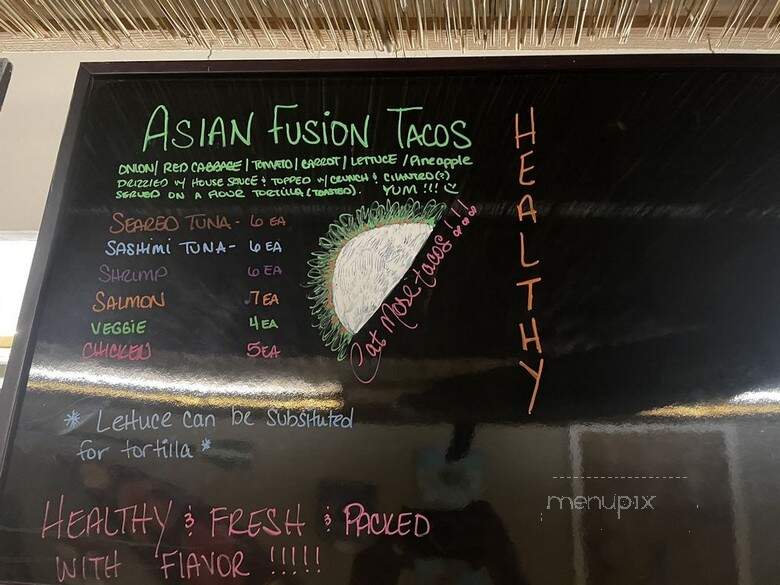 ASIAN FUSION TACOS
ONION / RED CABBAGE / TOMATO / CARROT / LETTUCE / Pineapple
DRIZZLED W/ HOUSE SAUCE & TOPPED W/ CRUNCH & CILANTRO(?)
SERVED ON A FLOUR TORTILLA (TOASTED). YUM !!!
SEARED TUNA - 6 EA
SASHIMI TUNA - 6 EA
SHRIMP 6 EA
SALMON 7 EA
VEGGIE 4 EA
CHICKEN 5 EA
Eat More tacos!!!
* Lettuce can be substituted
for tortilla *
HEALTHY & FRESH & PACKED
WITH FLAVOR !!!!!
HEALTHY
menupix